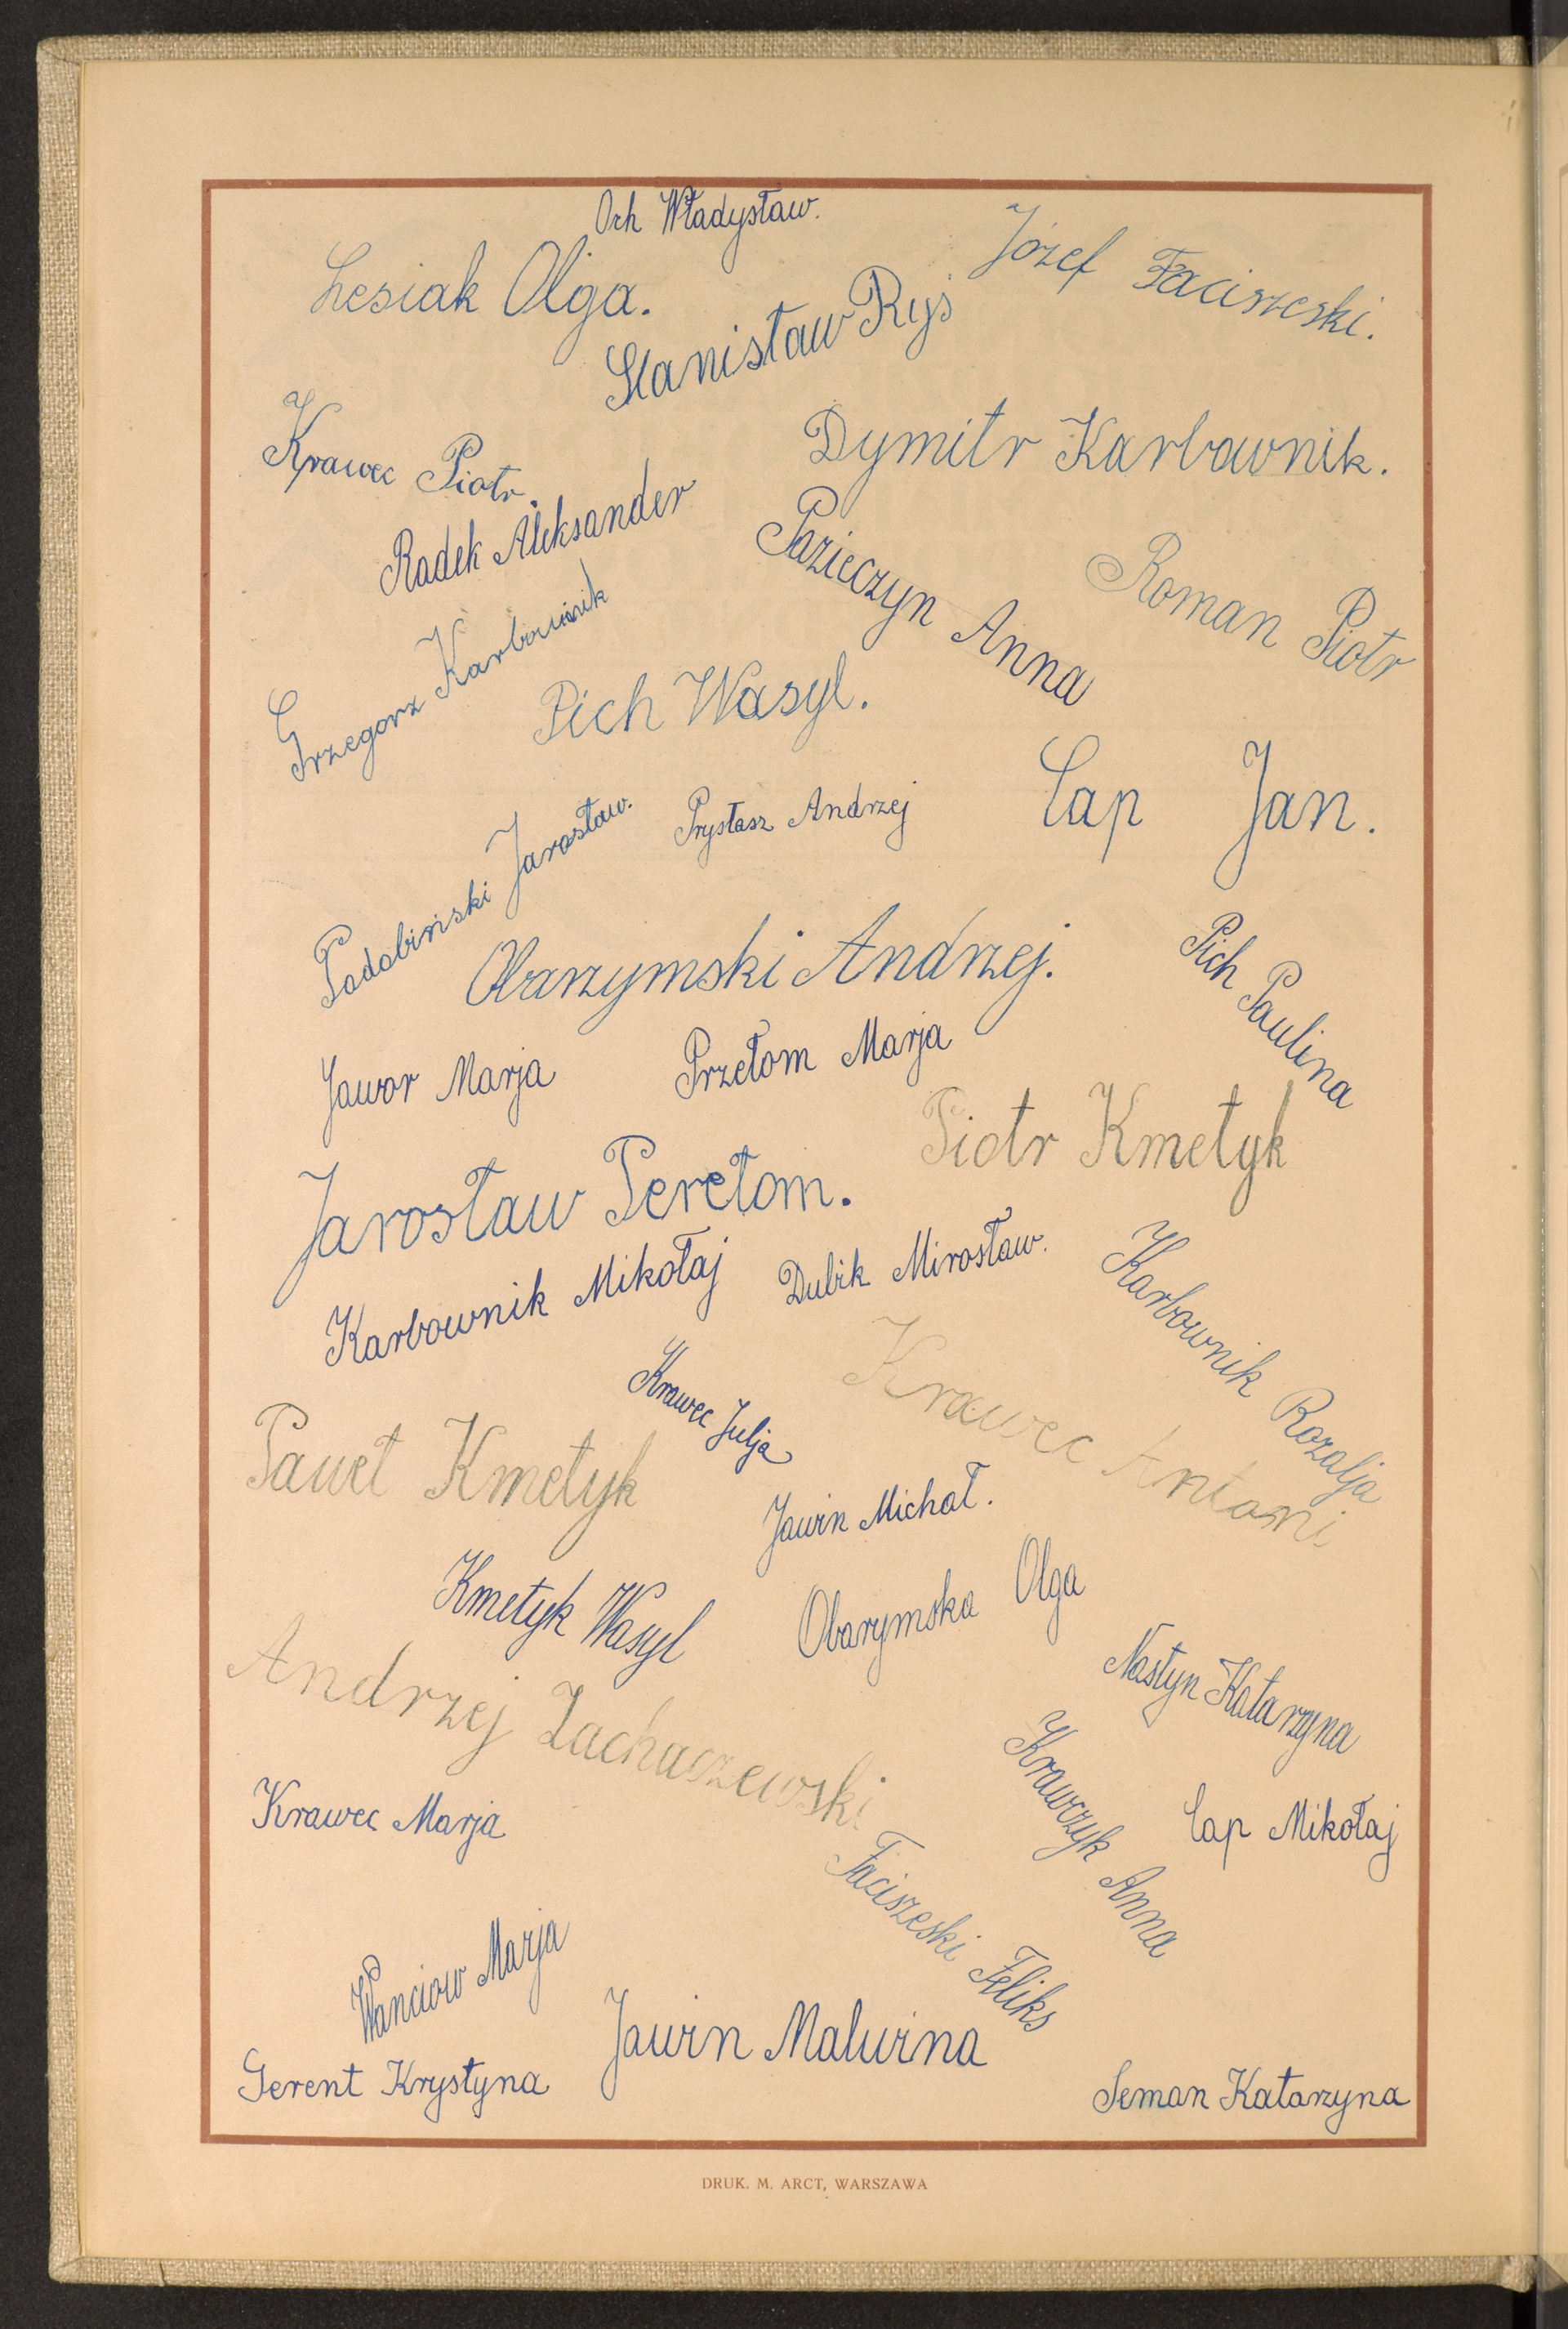 Och Władysław.
Lesiak Olga.
Józef Faciszeski.
Stanisław Ryś
Krawec Piotr.
Dymitr Karbownik.
Radek Aleksander
Pazieczyn Anna
Roman Piotr
Grzegorz Karbownik
Pich Wasyl.
Cap Jan.
Prystasz Andrzej
Podobiński Jarosław.
Obarzymski Andrzej.
Pich Paulina
Jawor Marja
Przełom Marja
Piotr Kmetyk
Jarosław Perełom.
Karbownik Mikołaj
Dubik Mirosław.
Karbownik Rozalja
Krawec Julja
Krawec Antoni
Paweł Kmetyk
Jawin Michał.
Kmetyk Wasyl
Obarymska Olga
Nastyn Katarzyna
Andrzej Zachaczewski
Krawczyk Anna
Krawec Marja
Cap Mikołaj
Faciszeski Feliks
Wanciow Marja
Jawin Malwina
Gerent Krystyna
Seman Katarzyna
DRUK. M. ARCT, WARSZAWA